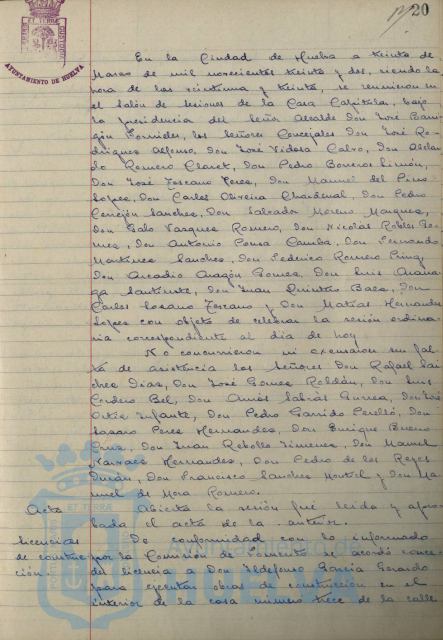 20
AYUNTAMIENTO DE HUELVA
En la Ciudad de Huelva a treinta de
Marzo de mil novecientos treinta y dos, siendo la
hora de las veintiuna y treinta, se reunieron en
el Salón de sesiones de la Casa Capitular, bajo
la presidencia del Señor Alcalde Don José Barri-
gón Fornieles, los Señores Concejales Don José Ro-
driguez Alfonso, Don José Vidosa Calvo, Don
Romero Claret, Don Pedro Borrero Limón,
Don José Toscano Perez, Don Manuel del Pino
Lopez, Don Carlos Oliveira Chardenal, Don Pedro
Cerejón Sanchez, Don Salvador Moreno Marquez,
Don Galo Vazquez Romero, Don Nicolas Robles Go-
mez, Don Antonio Pousa Camba, Don Fernando
Martinez Sanchez, Don Federico Romero
Don Arcadio Aragón Gomez, Don Luis
Don Juan Quintero Baez, Don
Carlos Lozano Toscano y Don Matías Hernandez
Lopez con objeto de celebrar la sesión ordina-
ria correspondiente al dia de hoy
No concurrieron ni excusaron su fal-
ta de asistencia los Señores Don Rafael San-
chez Diaz, Don José Gomez Roldán, Don Luis
Cordero Bel, Don Amós Sabrás Gurrea, Don José
Ortiz Infante, Don Pedro Garrido Perelló, Don
Lazaro Perez Hernandez, Don Enrique Bueno
Cruz, Don Juan Rebollo Jimenez, Don Manuel
Narvaez Hernandez, Don Pedro de los Reyes
Durán, Don Francisco Sanchez y Don Ma-
nuel de Mora Romero.
Acta Abierta la sesión fué leida y apro-
bada el acta de la anterior.
Licencias De conformidad con lo informado
de construc por la Comisión de Fomento se acordó conce-
ción der licencia a Don Ildefonso García Gerardo
para ejecutar obras de construcción en el
interior de la casa número trece de la calle